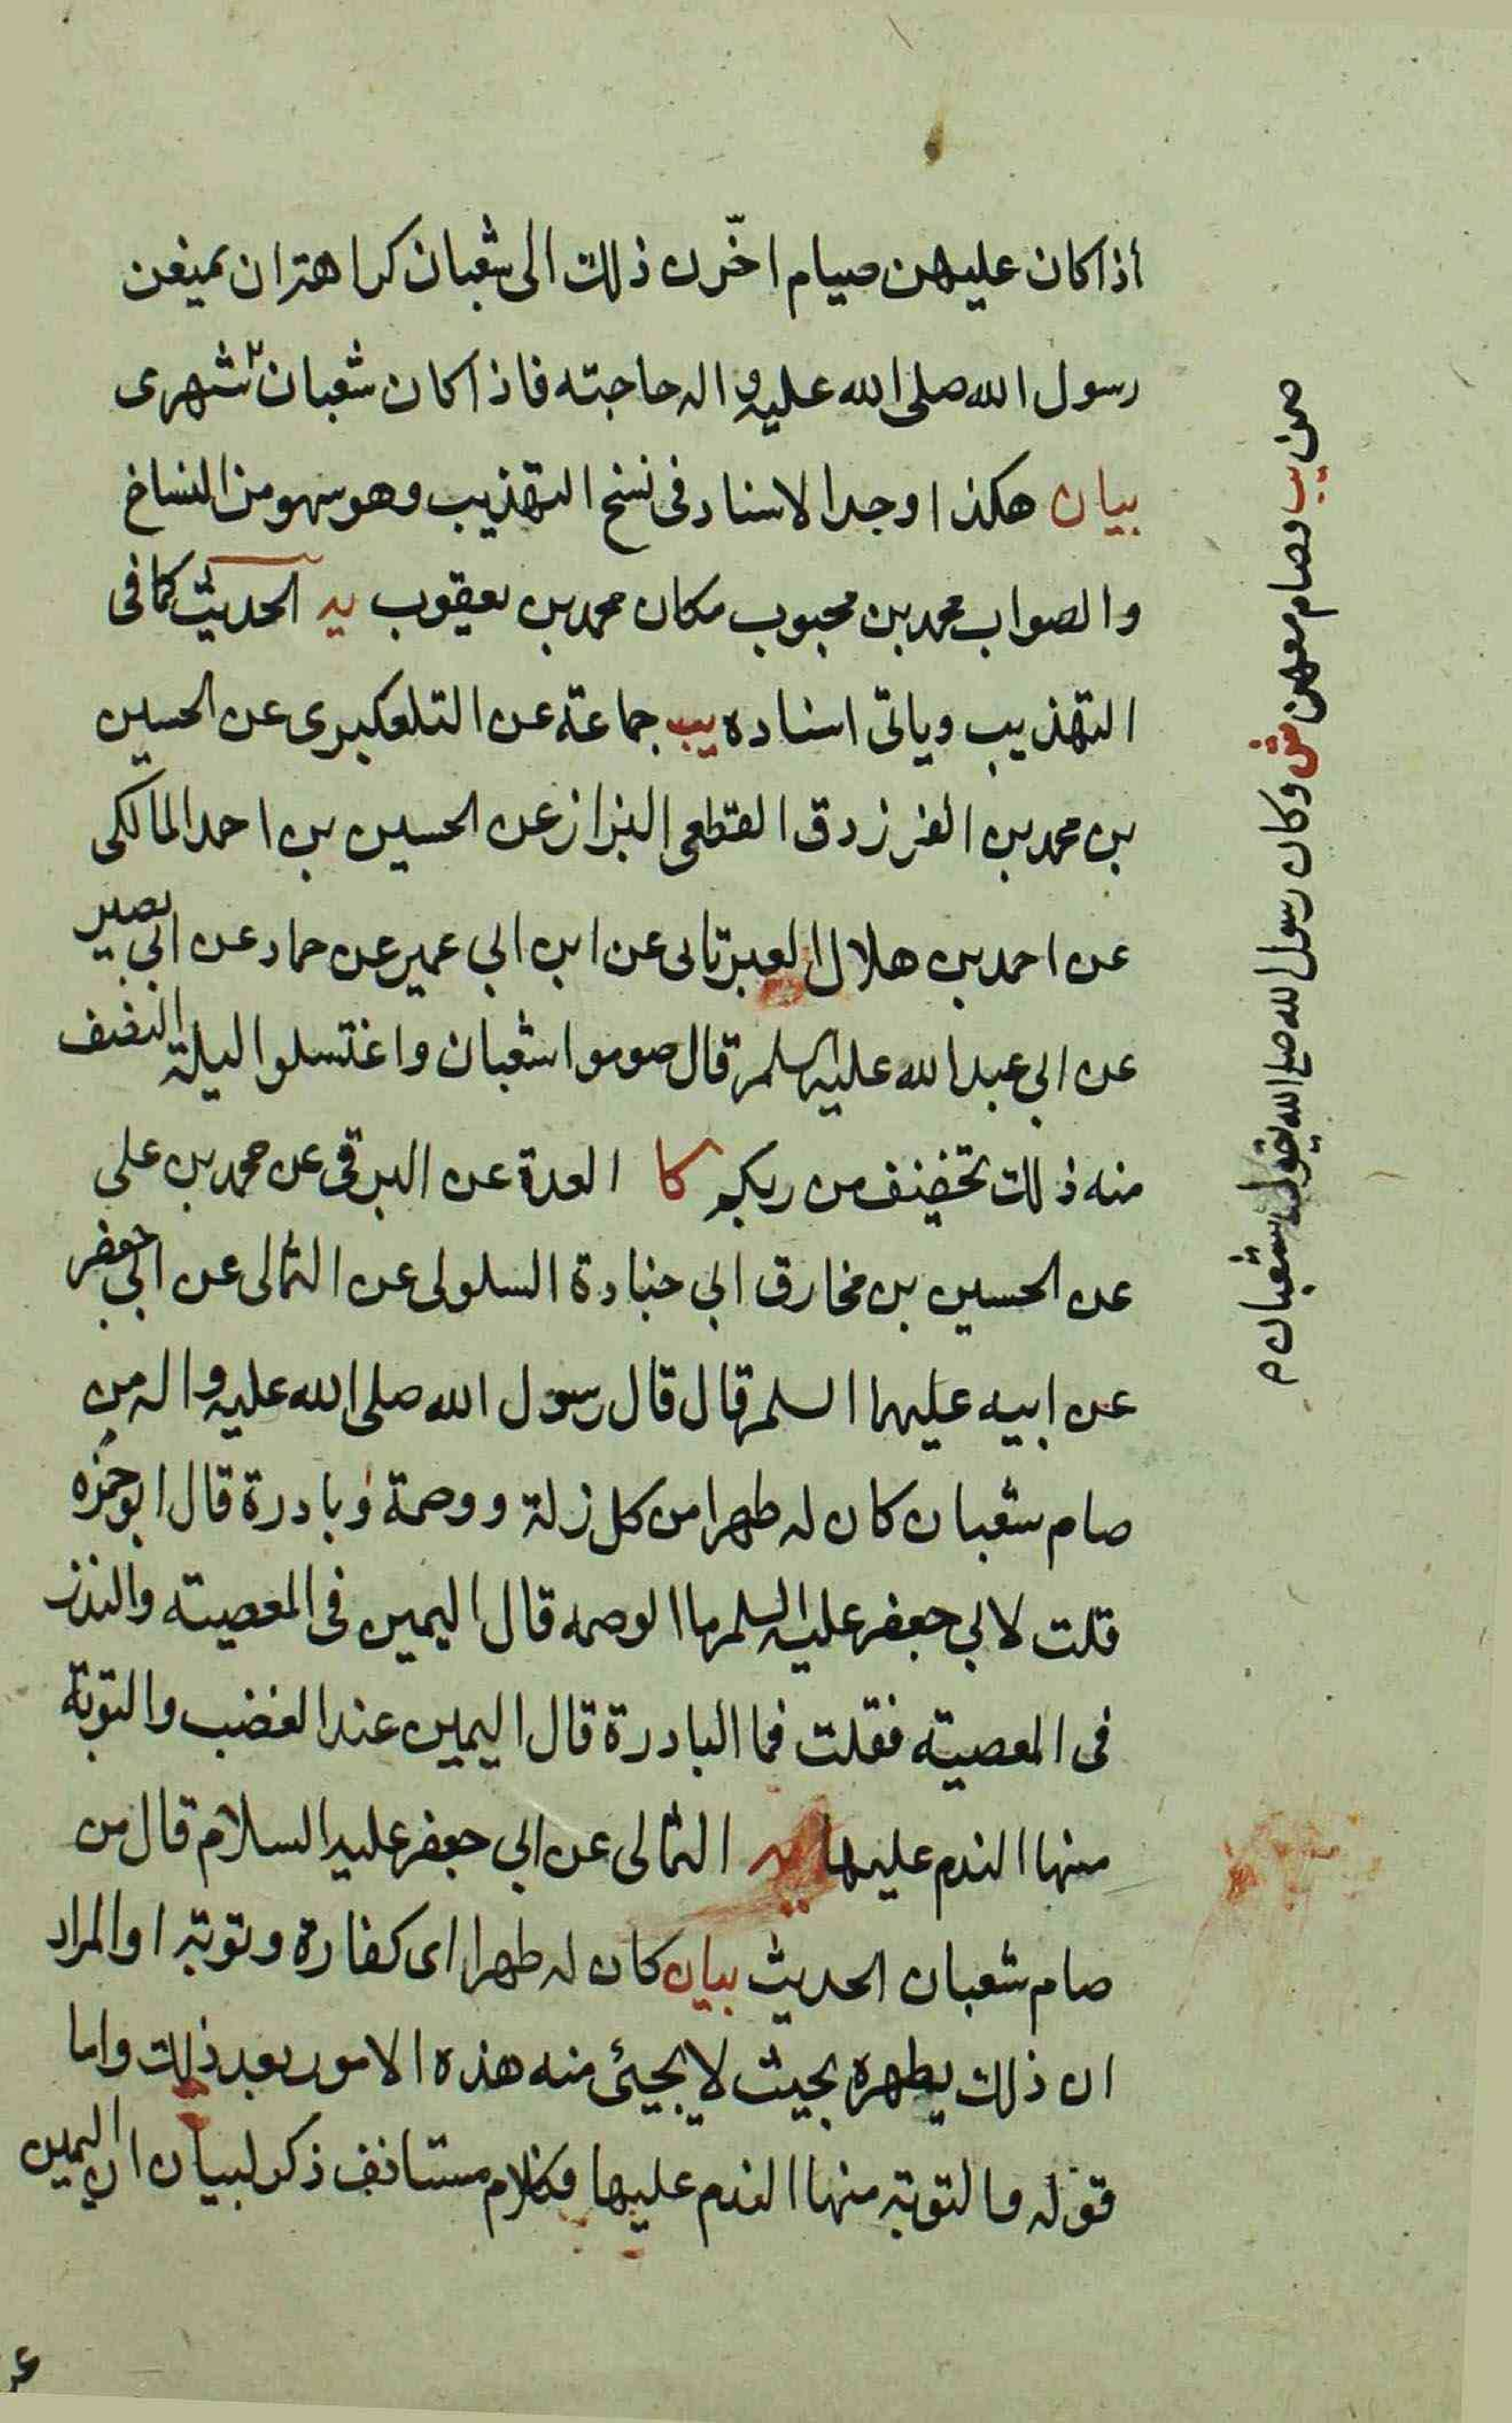 اذا كان عليهن صيام اخّرن ذلك الى شعبان كراهة ان يمنعن
رسول الله صلى الله عليه واله حاجته فاذا كان شعبان شهرى
بيان هكذا وجد الاسناد فى نسخ التهذيب وهو سهو من النساخ
والصواب محمد بن محبوب مكان محمد بن يعقوب يه الحديث كما فى
التهذيب وياتى اسناده يب جماعة عن التلعكبرى عن الحسين
بن محمد بن الفرزدق القطعى البزاز عن الحسين بن احمد المالكى
عن احمد بن هلال العبرتائى عن ابن ابي عمير عن حماد عن ابي بصير
عن ابي عبد الله عليه السلم قال صوموا شعبان واغتسلوا ليلة النصف
منه ذلك تخفيف من ربكم كا العدة عن البرقى عن محمد بن على
عن الحسين بن مخارق ابي جنادة السلولى عن الثمالى عن ابي جعفر
عن ابيه عليهما السلم قال قال رسول الله صلى الله عليه واله من
صام شعبان كان له طهرا من كل زلة ووصمة وبادرة قال ابو حمزه
قلت لابي جعفر عليه السلم ما الوصمه قال اليمين فى المعصيته والنذر
فى المعصيته فقلت فما البادرة قال اليمين عند الغضب والتوبة
منها الندم عليها يه الثمالى عن ابي جعفر عليه السلام قال من
صام شعبان الحديث بيان كان له طهرا اى كفارة وتوبة او المراد
ان ذلك يطهره بحيث لا يجيئ منه هذه الامور بعد ذلك واما
قوله والتوبة منها الندم عليها فكلام مستانف ذكر لبيان ان اليمين
صمن يب وصام معهن ش وكان رسول الله صلى الله يقول شعبان م